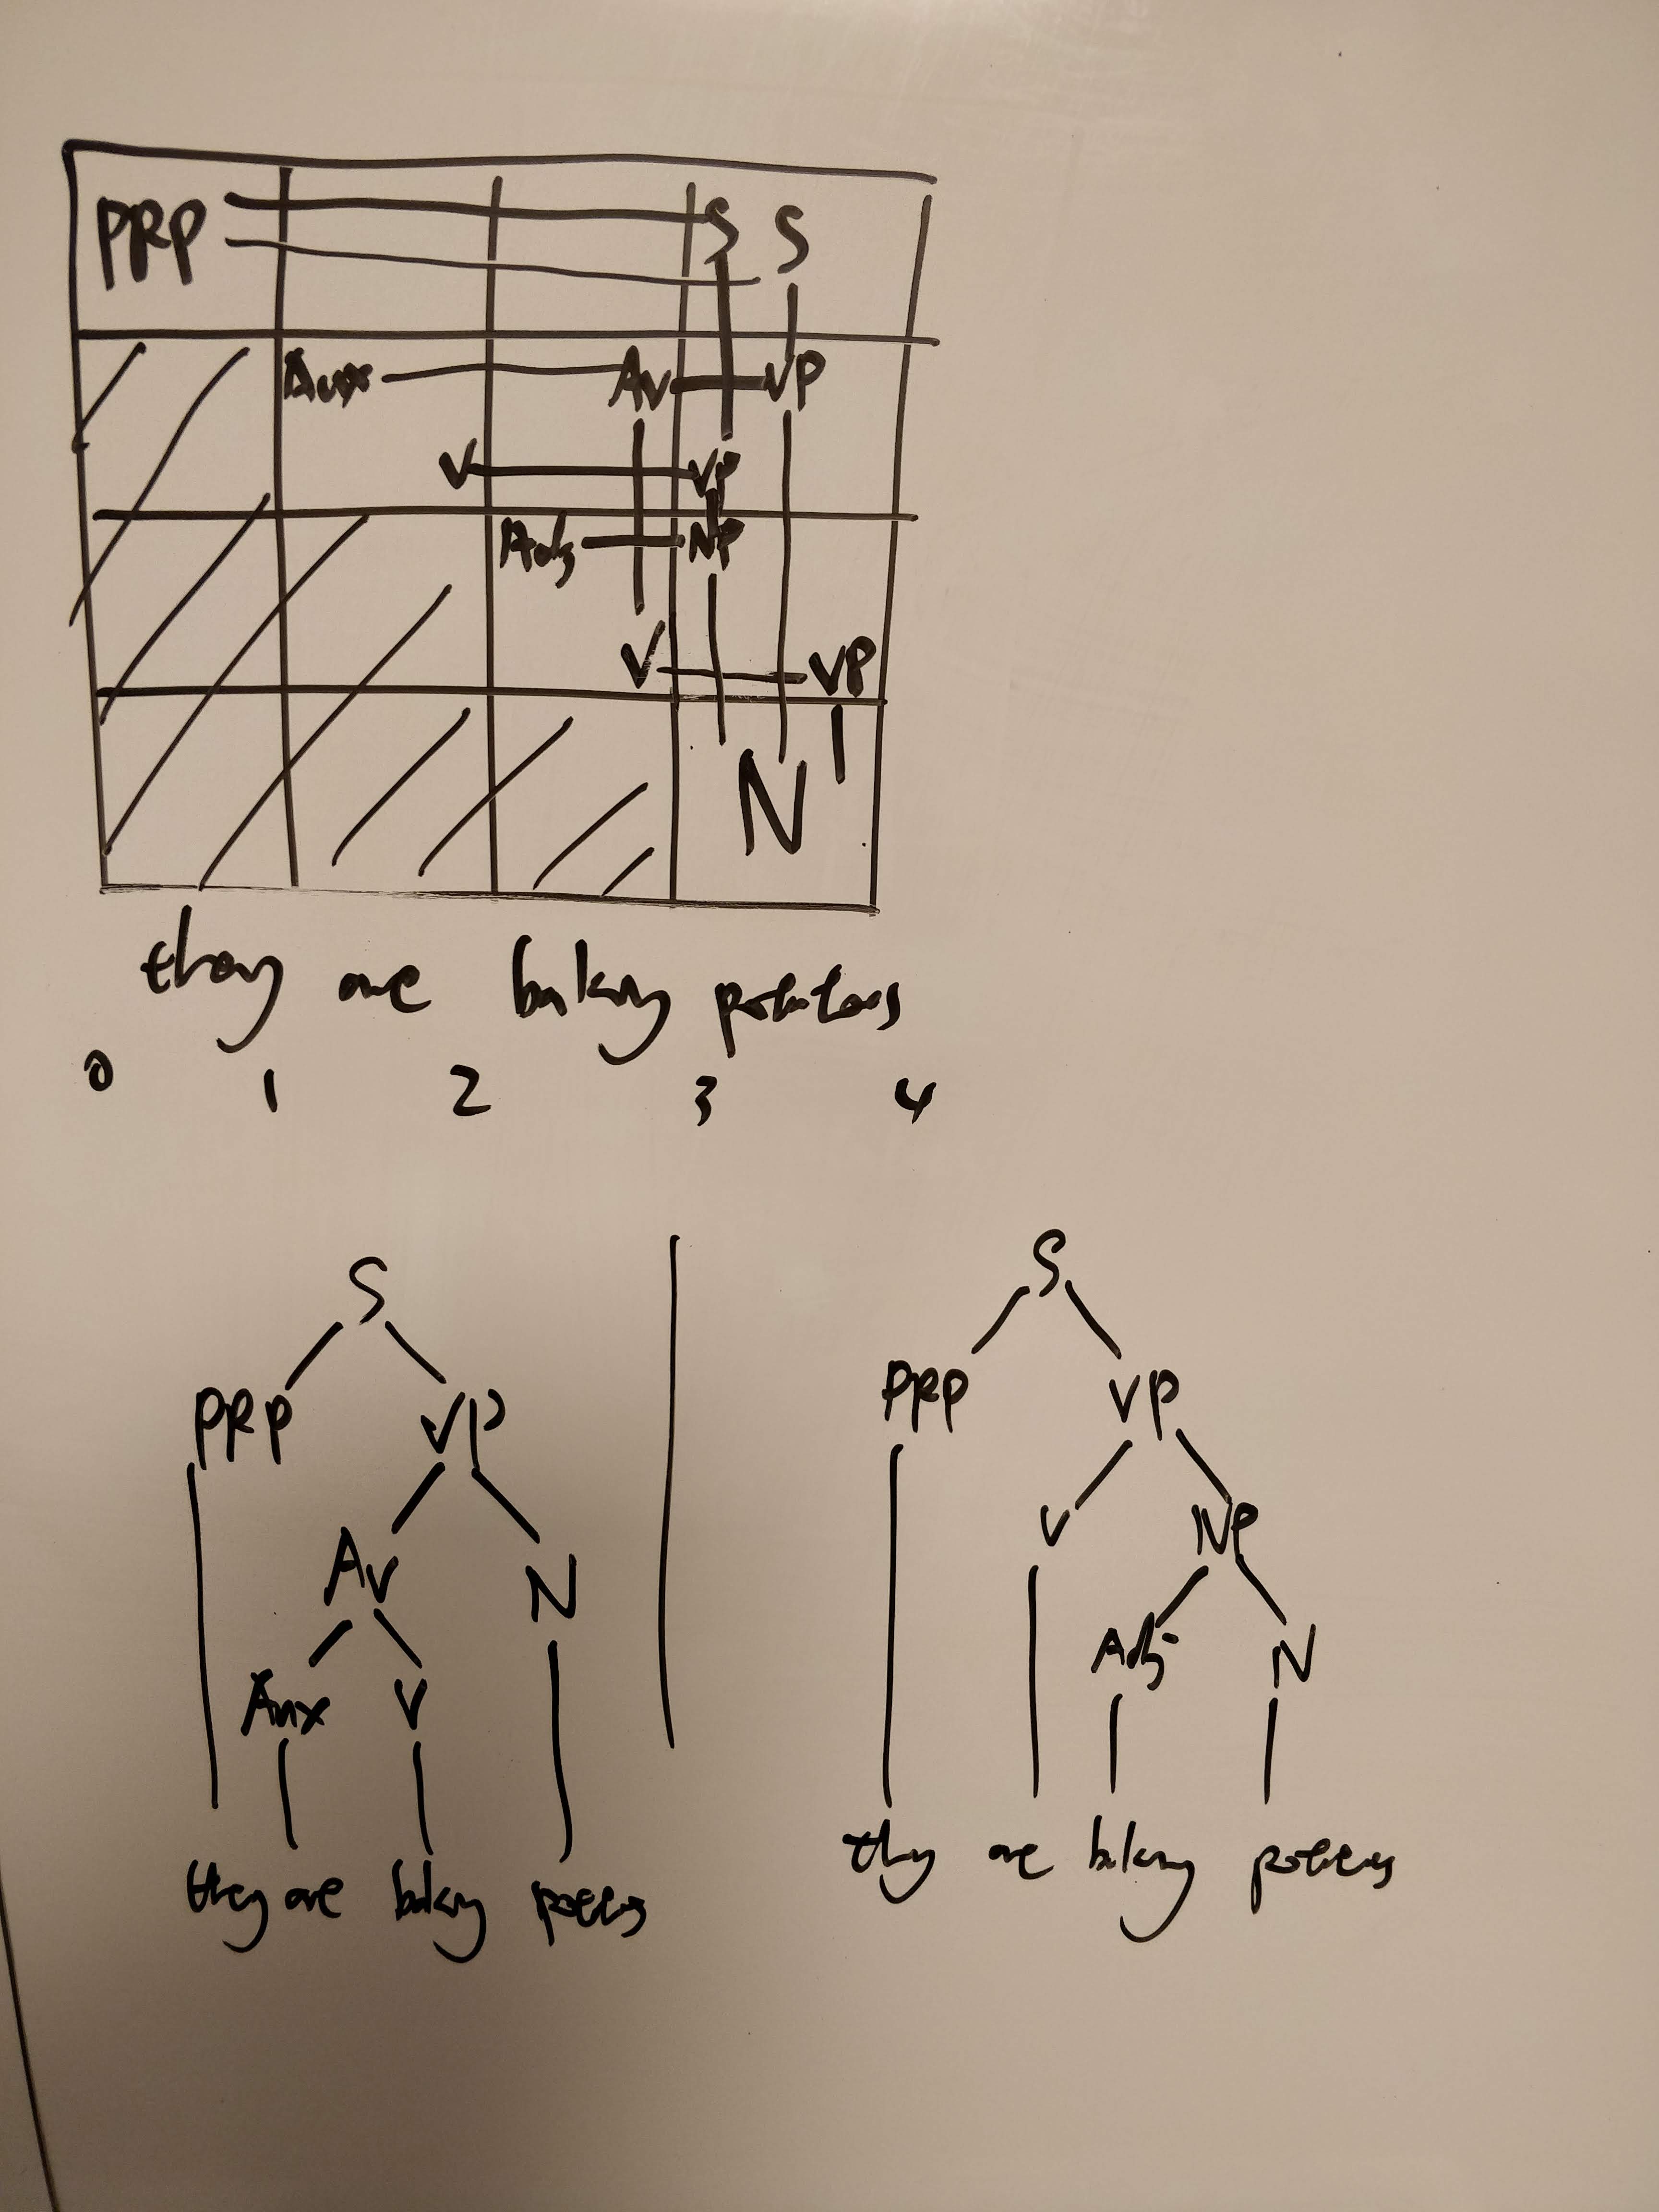 PRP S S
Aux AV VP
V VP
Adj NP
V VP
N
they are baking potatoes
0 1 2 3 4
S
PRP VP
AV N
Aux V
they are baking potatoes
S
PRP VP
V NP
Adj N
they are baking potatoes